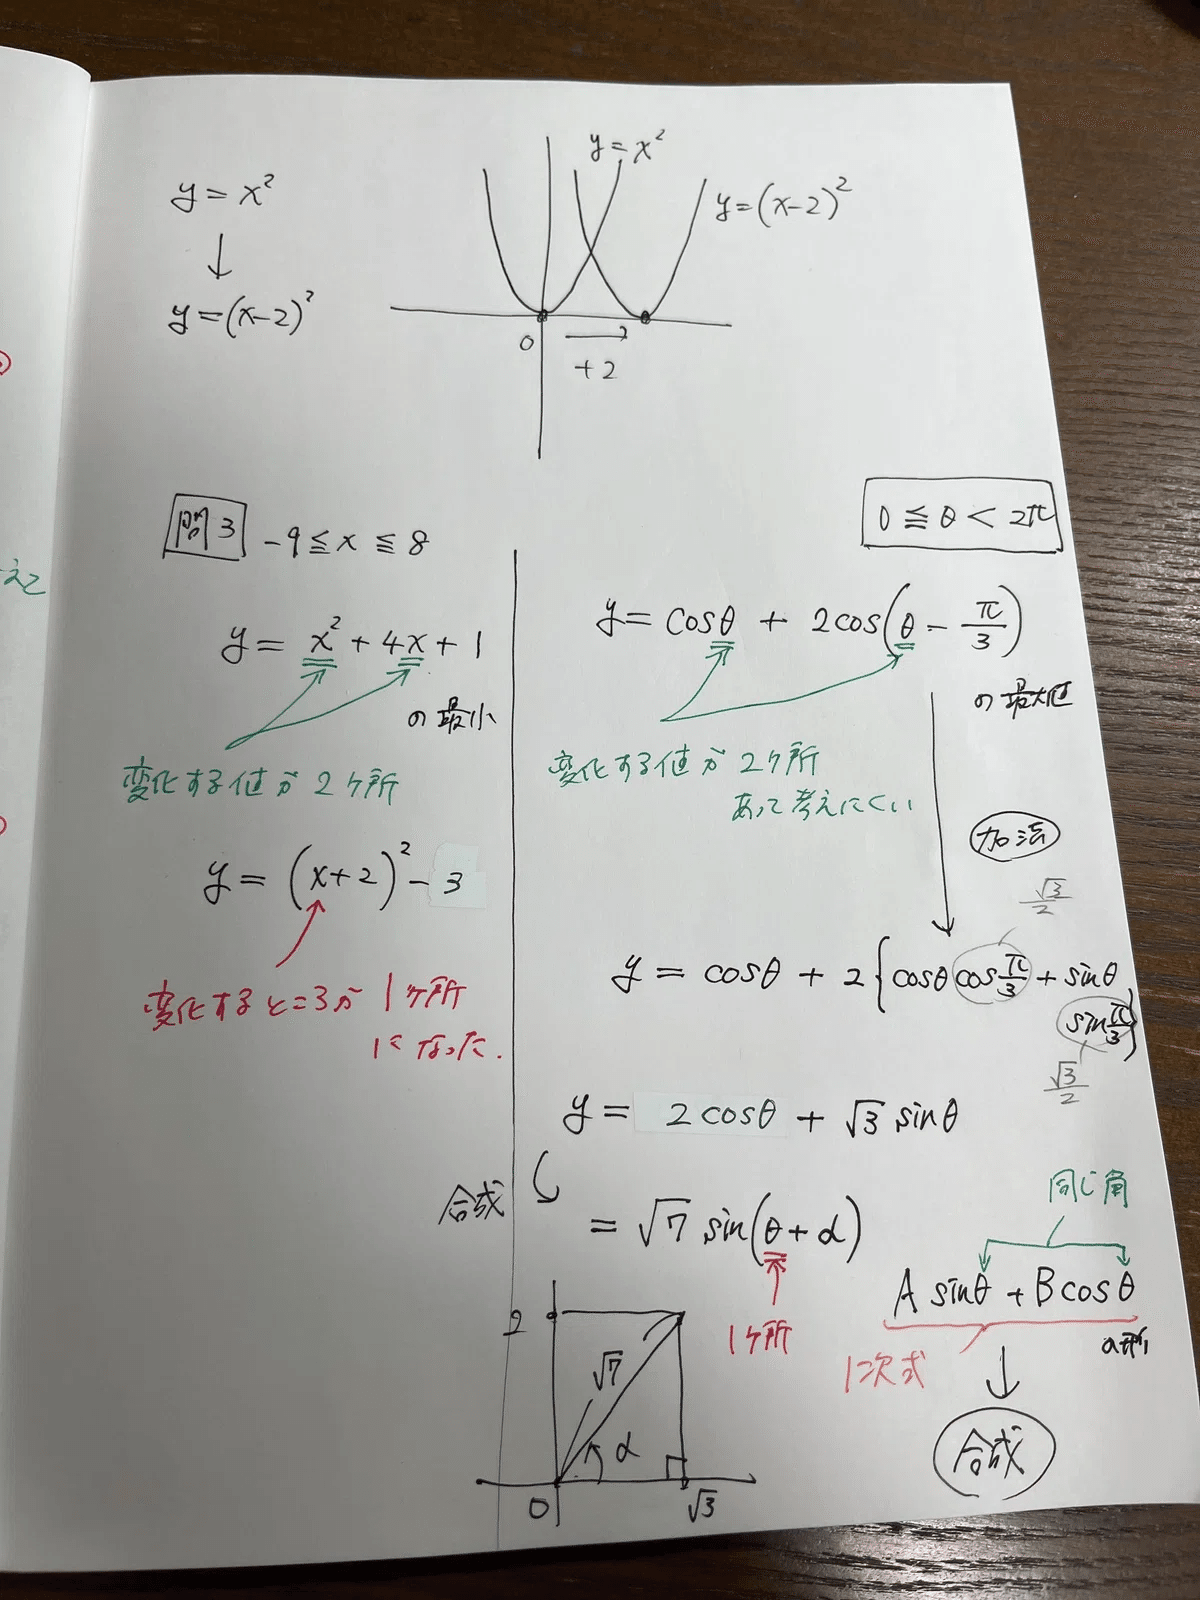 y = x²
↓
y = (x-2)²
y = x²
y = (x-2)²
0
+2
問3 -9 ≦ x ≦ 8
y = x² + 4x + 1
の最小
変化する値が2ヶ所
y = (x+2)² - 3
変化するところが1ヶ所
になった.
0 ≦ θ < 2π
y = cosθ + 2cos(θ - π/3)
の最大値
変化する値が2ヶ所
あって考えにくい
加法
√3/2
y = cosθ + 2{cosθ cos π/3 + sinθ
sin π/3}
√3/2
y = 2cosθ + √3 sinθ
合成
= √7 sin(θ + α)
1ヶ所
同じ角
A sinθ + B cosθ
の形
1次式
↓
合成
2
√7
α
0
√3